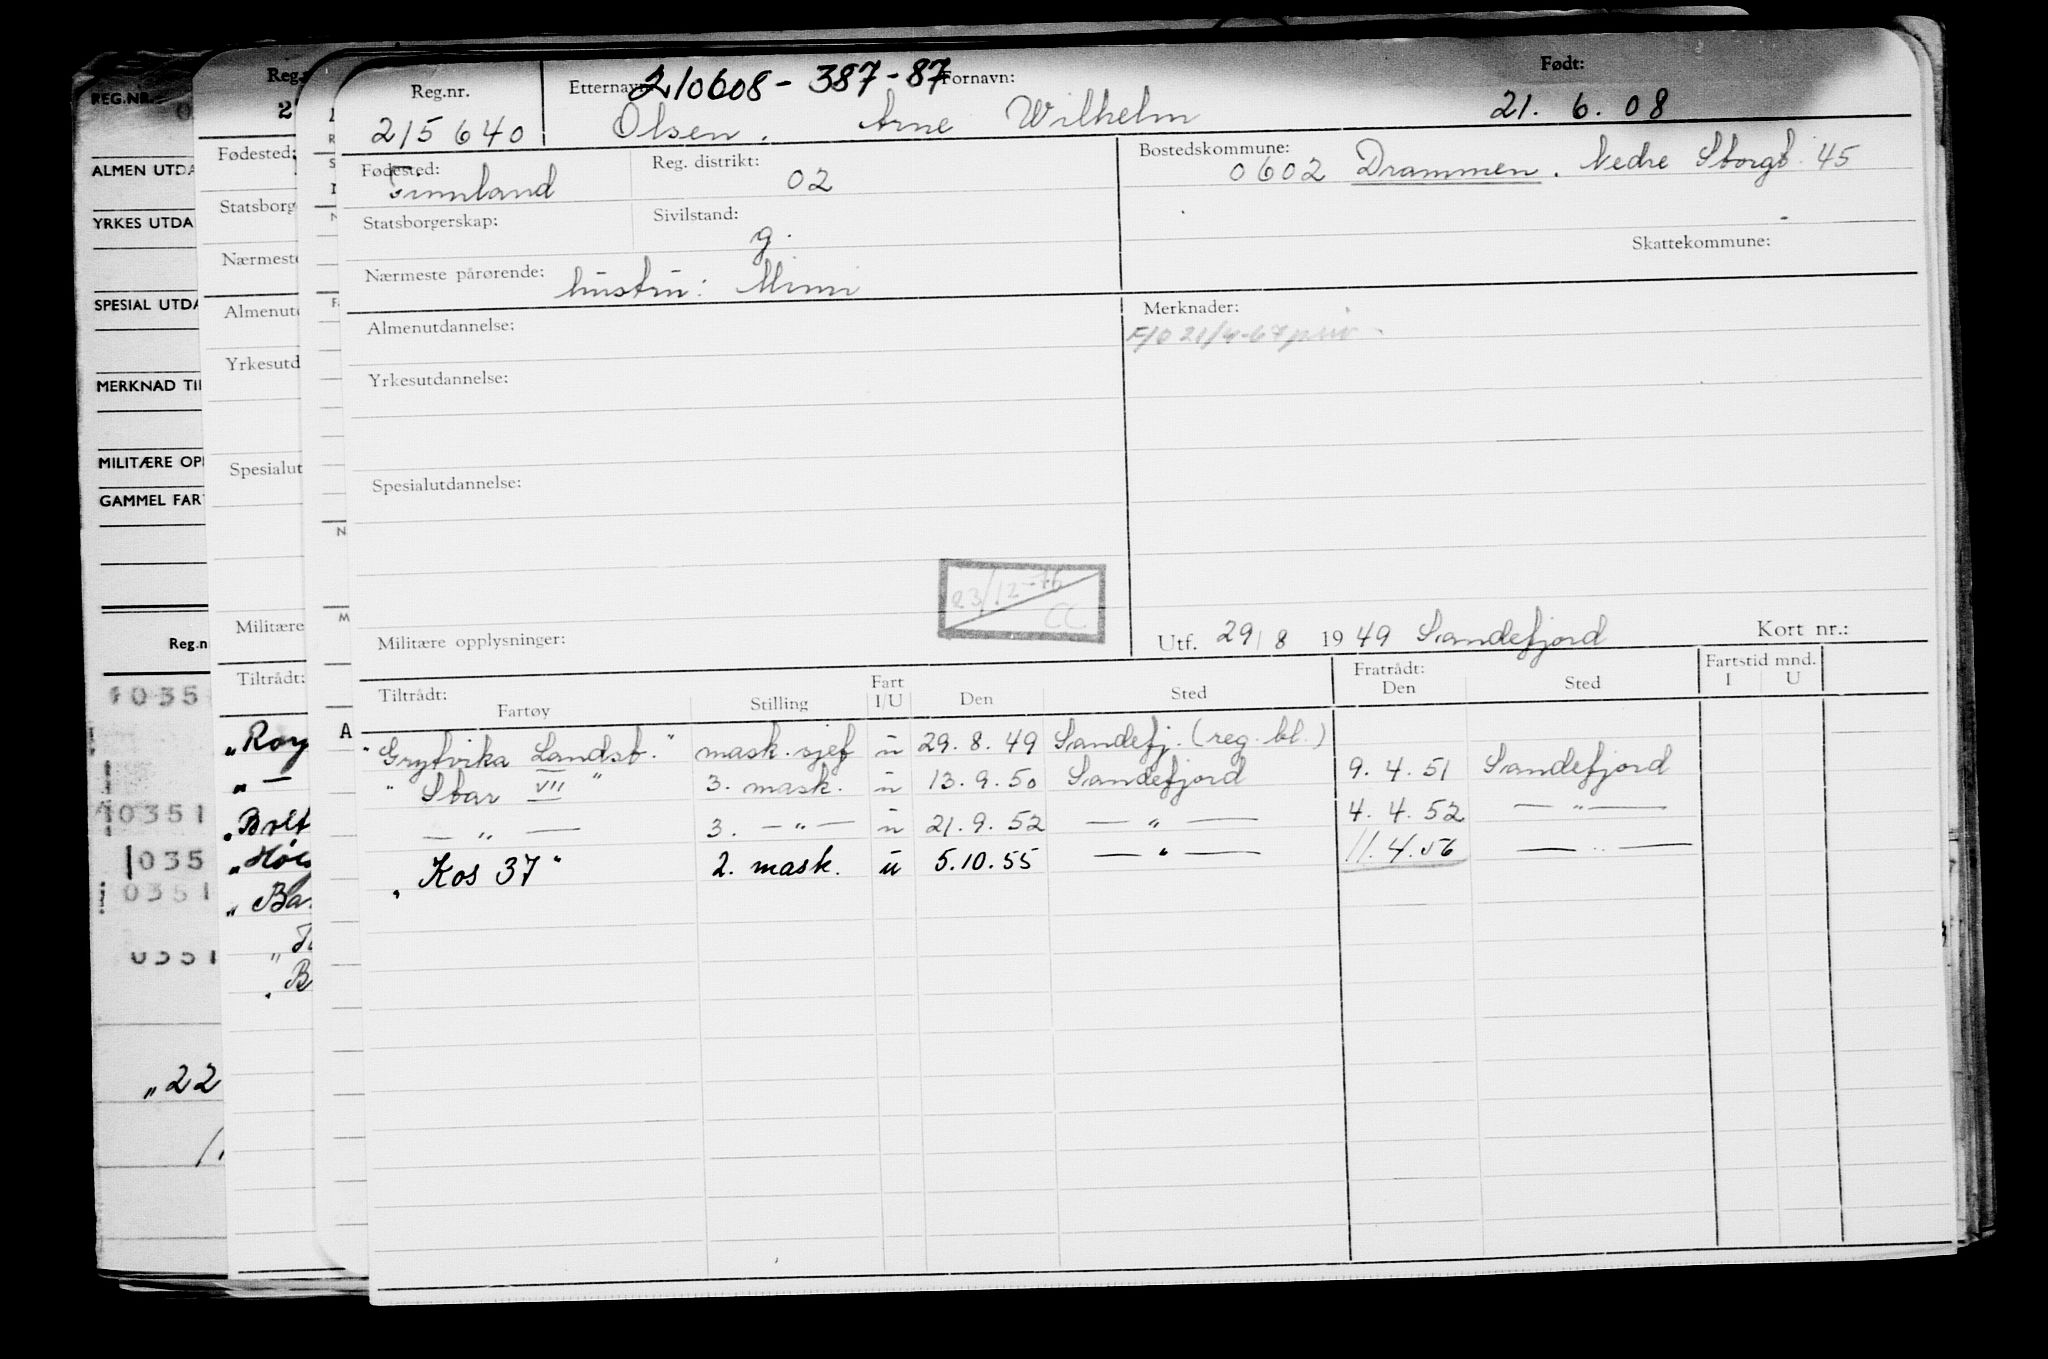 REG.NR.
ALMEN UTDA
YRKES UTDA
SPESIAL UTDA
MERKNAD TIL
MILITÆRE OP
GAMMEL FAR
Reg.n
1035
10351
1035
0351
0351
„22
Reg.
2
Fødested:
Statsborg
Nærmeste
Almenutd
Yrkesutd
Spesialut
Militære
Tiltrådt:
„Roy
„ —
„Bolt
„Ba
„B
A
Reg.nr. Etternavn: 210608-387-87 Fornavn: Født:
215640 Olsen, Arne Wilhelm 21. 6. 08
Fødested: Finnland Reg. distrikt: 02 Bostedskommune: 0602 Drammen. Nedre Storgt. 45
Statsborgerskap: Sivilstand: g.
Skattekommune:
Nærmeste pårørende: hustru: Mimi
Almenutdannelse: Merknader:
21/4-67
Yrkesutdannelse:
Spesialutdannelse:
23/12-76
CC
Militære opplysninger: Utf. 29/8 1949 Sandefjord Kort nr.:
Tiltrådt: Fart Fratrådt: Fartstid mnd.
Fartøy Stilling I/U Den Sted Den Sted I U
"Grytvika Landst." mask.sjef u 29. 8. 49 Sandefj. (reg. bl.)
" Star VII " 3. mask. u 13. 9. 50 Sandefjord 9. 4. 51 Sandefjord
— " — 3. — " — u 21. 9. 52 — " — 4. 4. 52 — " —
„Kos 37" 2. mask. u 5.10.55 — " — 11.4.56 — " —